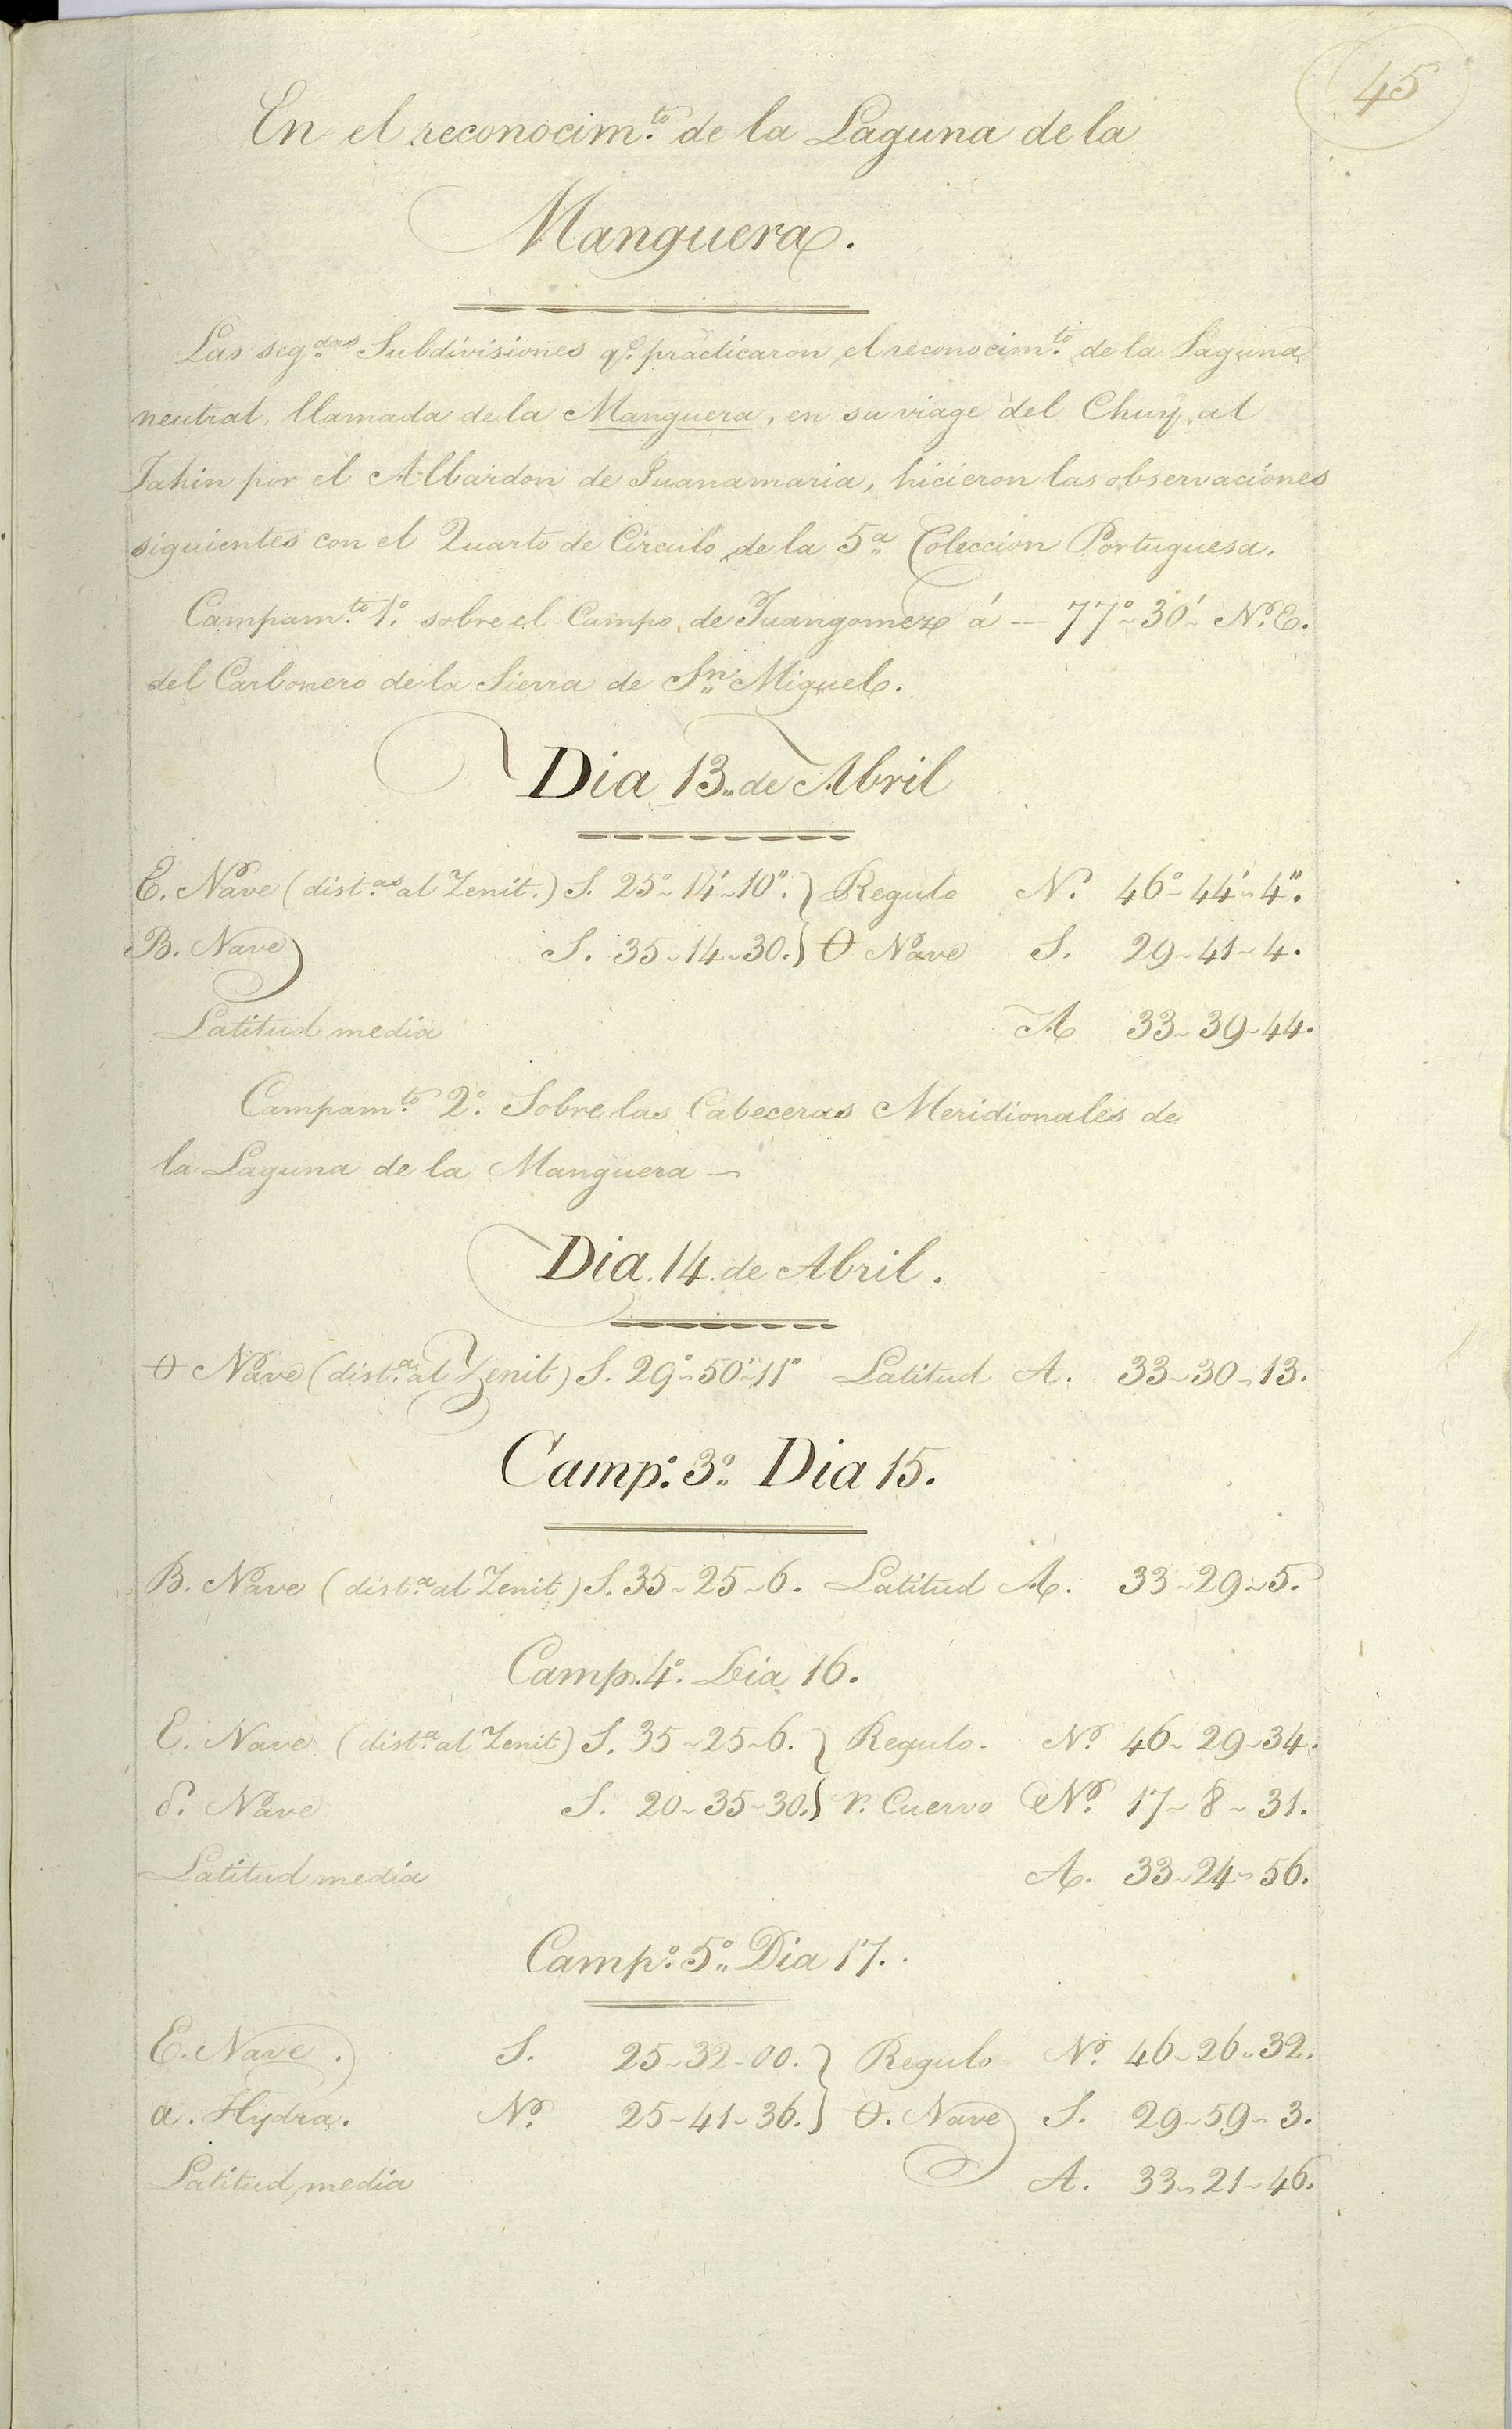 45
En el reconocim.to de la Laguna de la
Manguera.
Las seg.das Subdivisiones q.e practicaron el reconocim.to de la Laguna
neutral, llamada de la Manguera, en su viage del Chuy al
Tahin por el Albardon de Juanamaria, hicieron las observaciones
siguientes con el Quarto de Circulo de la 5.a Coleccion Portuguesa.
Campam.to 1.o sobre el Campo de Juangomez á — 77°~30'~ N.o E.
del Carbonero de la Sierra de S.n Miguel.
Dia 13 de Abril
E. Nave (dist.as al Zenit.) S. 25°~14'~10''. } Regulo N.o 46°~44'~4''.
B. Nave S. 35~14~30. } θ Nave S. 29~41~4.
Latitud media A 33~39~44.
Campam.to 2.o Sobre las Cabeceras Meridionales de
la Laguna de la Manguera —
Dia 14 de Abril.
θ Nave (dist.a al Zenit) S. 29°~50'~11'' Latitud A. 33~30~13.
Camp.o 3.o Dia 15.
B. Nave (dist.a al Zenit) S. 35~25~6. Latitud A. 33~29~5.
Camp. 4.o Dia 16.
E. Nave (dist.a al Zenit) S. 35~25~6. } Regulo. N.o 46~29~34.
δ. Nave S. 20~35~30. } γ. Cuervo N.o 17~8~31.
Latitud media A. 33~24~56.
Camp.o 5.o Dia 17.
E. Nave. S. 25~32~00. } Regulo N.o 46~26~32.
α. Hydra. N.o 25~41~36. } θ. Nave S. 29~59~3.
Latitud media A. 33~21~46.